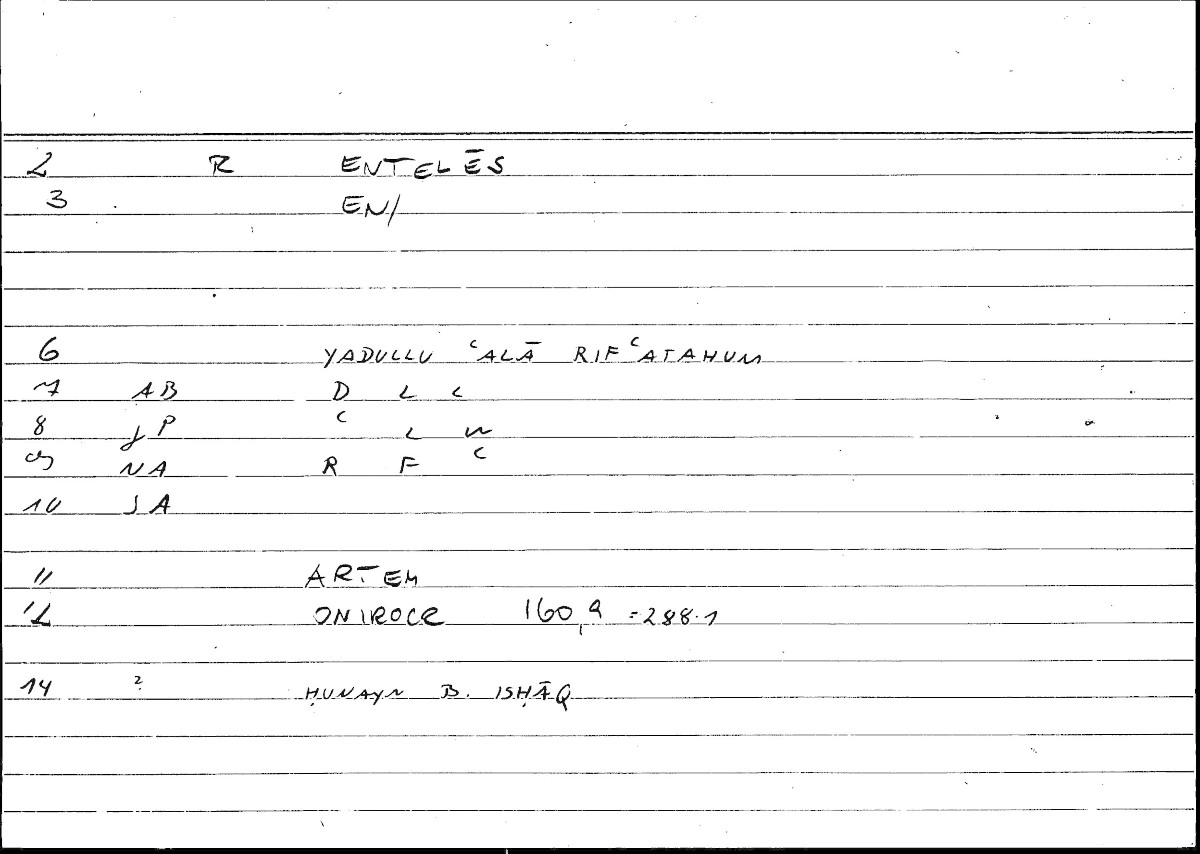 2 R ENTELĒS
3 EN/
6 YADULLU ʿALĀ RIFʿATAHUM
7 AB D L L
8 JP ʿ L W
9 NA R F ʿ
10 JA
11 ARTEM
12 ONIROCR 160,9 =288.1
14 2 ḤUNAYN B. ISḤĀQ